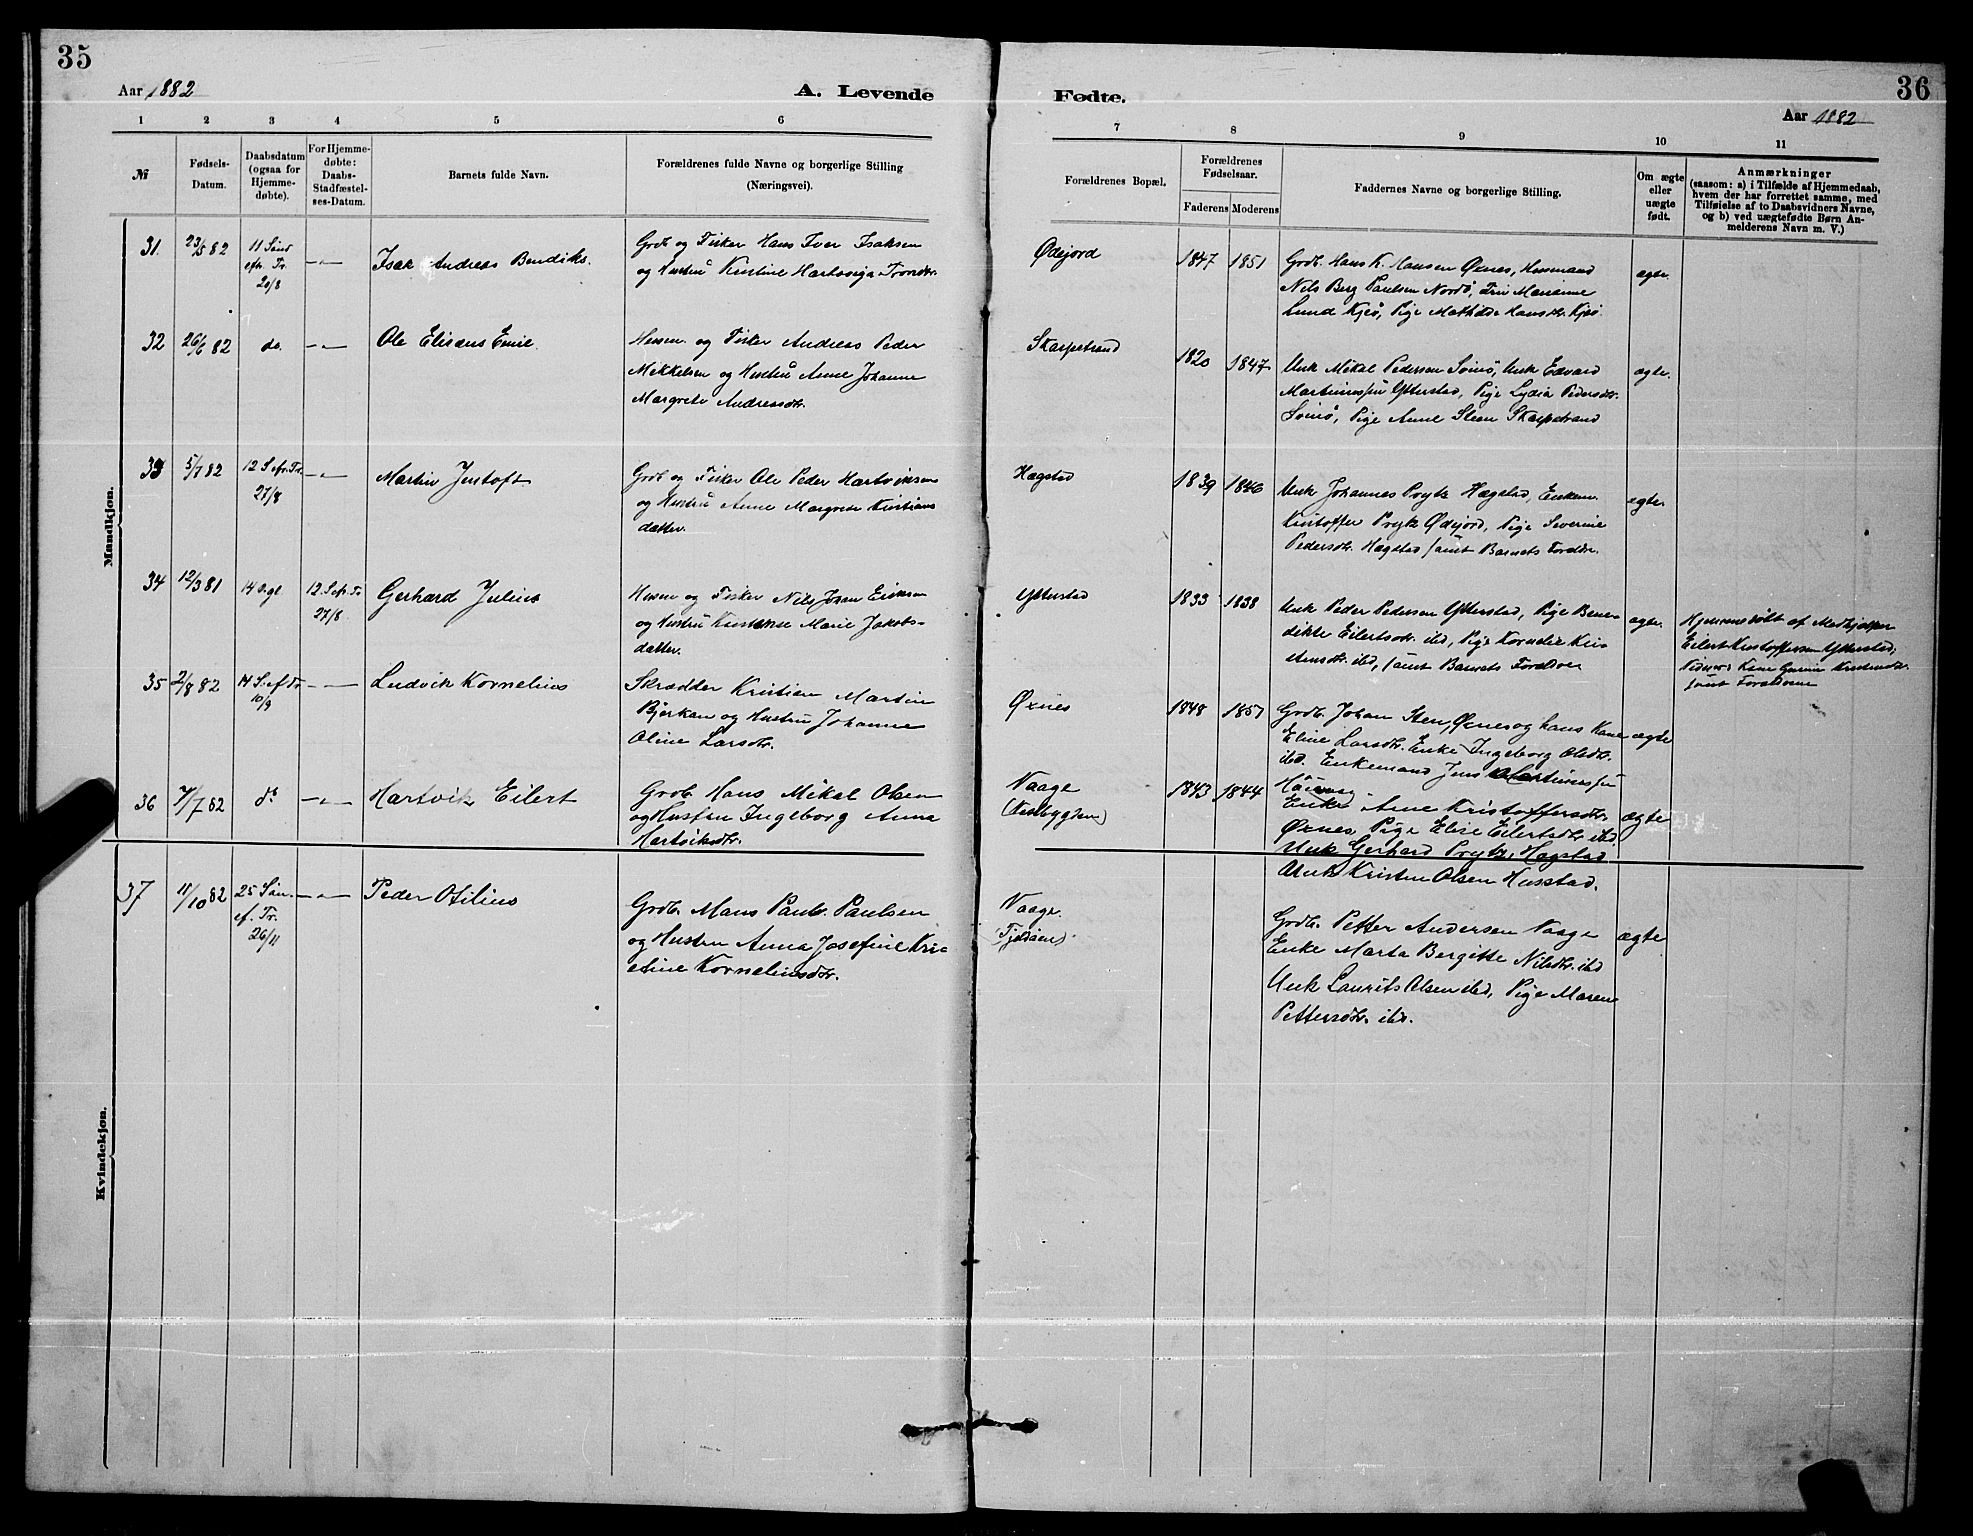 35
Aar 1882
A. Levende
1 2 3 4 5 6
№
Fødsels-
Datum.
Daabsdatum
(ogsaa for
Hjemme-
døbte).
For Hjemme-
døbte:
Daabs-
Stadfæstel-
ses-Datum.
Barnets fulde Navn.
Forældrenes fulde Navne og borgerlige Stilling
(Næringsvei).
Mandkjøn.
31. 23/5 82 11 Sønd
eftr. Tr.
20/8
Isak Andreas Bendiks.
Grdb og Fisker Hans Iver Isaksen
og Hustru Kristine Hartvviga Trondsdtr.
32 26/6 82 do. Ole Eliseus Emil.
Husm. og Fisker Andreas Peder
Mikkelsen og Hustru Anne Johanne
Margrete Andreasdtr.
33 5/7 82 12 S. efr. Tr.
27/8
Martin Justoft
Grdb og Fisker Ole Peder Hartviksen
og Hustru Anne Margrete Kristians
datter.
34 12/3 81 12. S. efr. Tr
27/8
Gerhard Julius
Husm og Fisker Nils Johan Eriksen
og Hustru Marie Jakobs-
datter.
35 2/8 82 14 S. ef. Tr
10/9
Ludvik Kornelius
Skrædder Kristian Martin
Bjerkan og Hustru Johanne
Oline Larsdtr.
36 7/7 82 do Hartvik Eilert
Grdb. Hans Mikal Olsen
og Hustru Ingeborg Anna
Hartviksdtr.
Kvindekjøn.
37 11/10 82 25 Søn.
ef. Tr.
26/11
Peder Otilius
Grdb. Mons Paul. Paulsen
og Hustru Anna Josefine Kri-
stine Korneliusdtr.
36
Fødte.
Aar 1882
7 8 9 10 11
Forældrenes Bopæl.
Forældrenes
Fødselsaar.
Faderens Moderens
Faddernes Navne og borgerlige Stilling.
Om ægte
eller
uægte
født.
Anmærkninger
(saasom: a) i Tilfælde af Hjemmedaab,
hvem der har forrettet samme, med
Tilføielse af to Daabsvidners Navne,
og b) ved uægtefødte Børn An-
melderens Navn m. V.)
Ødejord 1847 1851 Grdb. Hans K. Hansen Øxnes, Husmand
Nils Berg Paulsen Nordø, Fru Marianne
Lund Kjeø, Pige Mathilde Hansdtr. Kjeø.
ægte.
Skarpstrand 1820 1847 Unk Mikal Pedersen, Unk Edvard
Martinussen Ytterstad, Pige Lydia Pedersdtr.
Pige Anne Steen Skarpstrand
ægte.
Hægstad 1839 1846 Unk Johannes Prytz Hægstad, Enkem.
Kristoffer Prytz Ødejord, Pige Severine
Pedersdtr. Hægstad samt Barnets Forældre.
ægte.
Ytterstad 1833 1838 Unk Peder Pedersen Ytterstad, Pige Bene-
dikte Eilertsdtr. ibd, Pige Kornelie Kri-
stensdtr. ibd, samt Barnets Forældre
ægte.
Hjemmedøbt af Medhjælper
Eilert Kristoffersen Ytterstad;
samt Forældrene
Øxnes 1848 1857 Grdb. Johan Sten, Øxnes og hans Kone
Eline Larsdtr. Enke Ingeborg Olsdtr.
ibd. Enkemand Jens Martinussen
ægte
Vaage
(Vestbygden) 1843 1844 Enke Ane Kristoffersdtr.
Øxnes, Pige Elise Eilertsdtr ibd
Unk Gerhard Prytz, Hægstad
Unk Kristen Olsen Husstad.
ægte
Vaage.
(Tjeldøen). Grdb. Petter Andersen Vaage
Enke Marta Bergitte Nilsdtr. ibd
Unk Laurits Olsen ibd, Pige Maren
Pettersdtr. ibd.
ægte